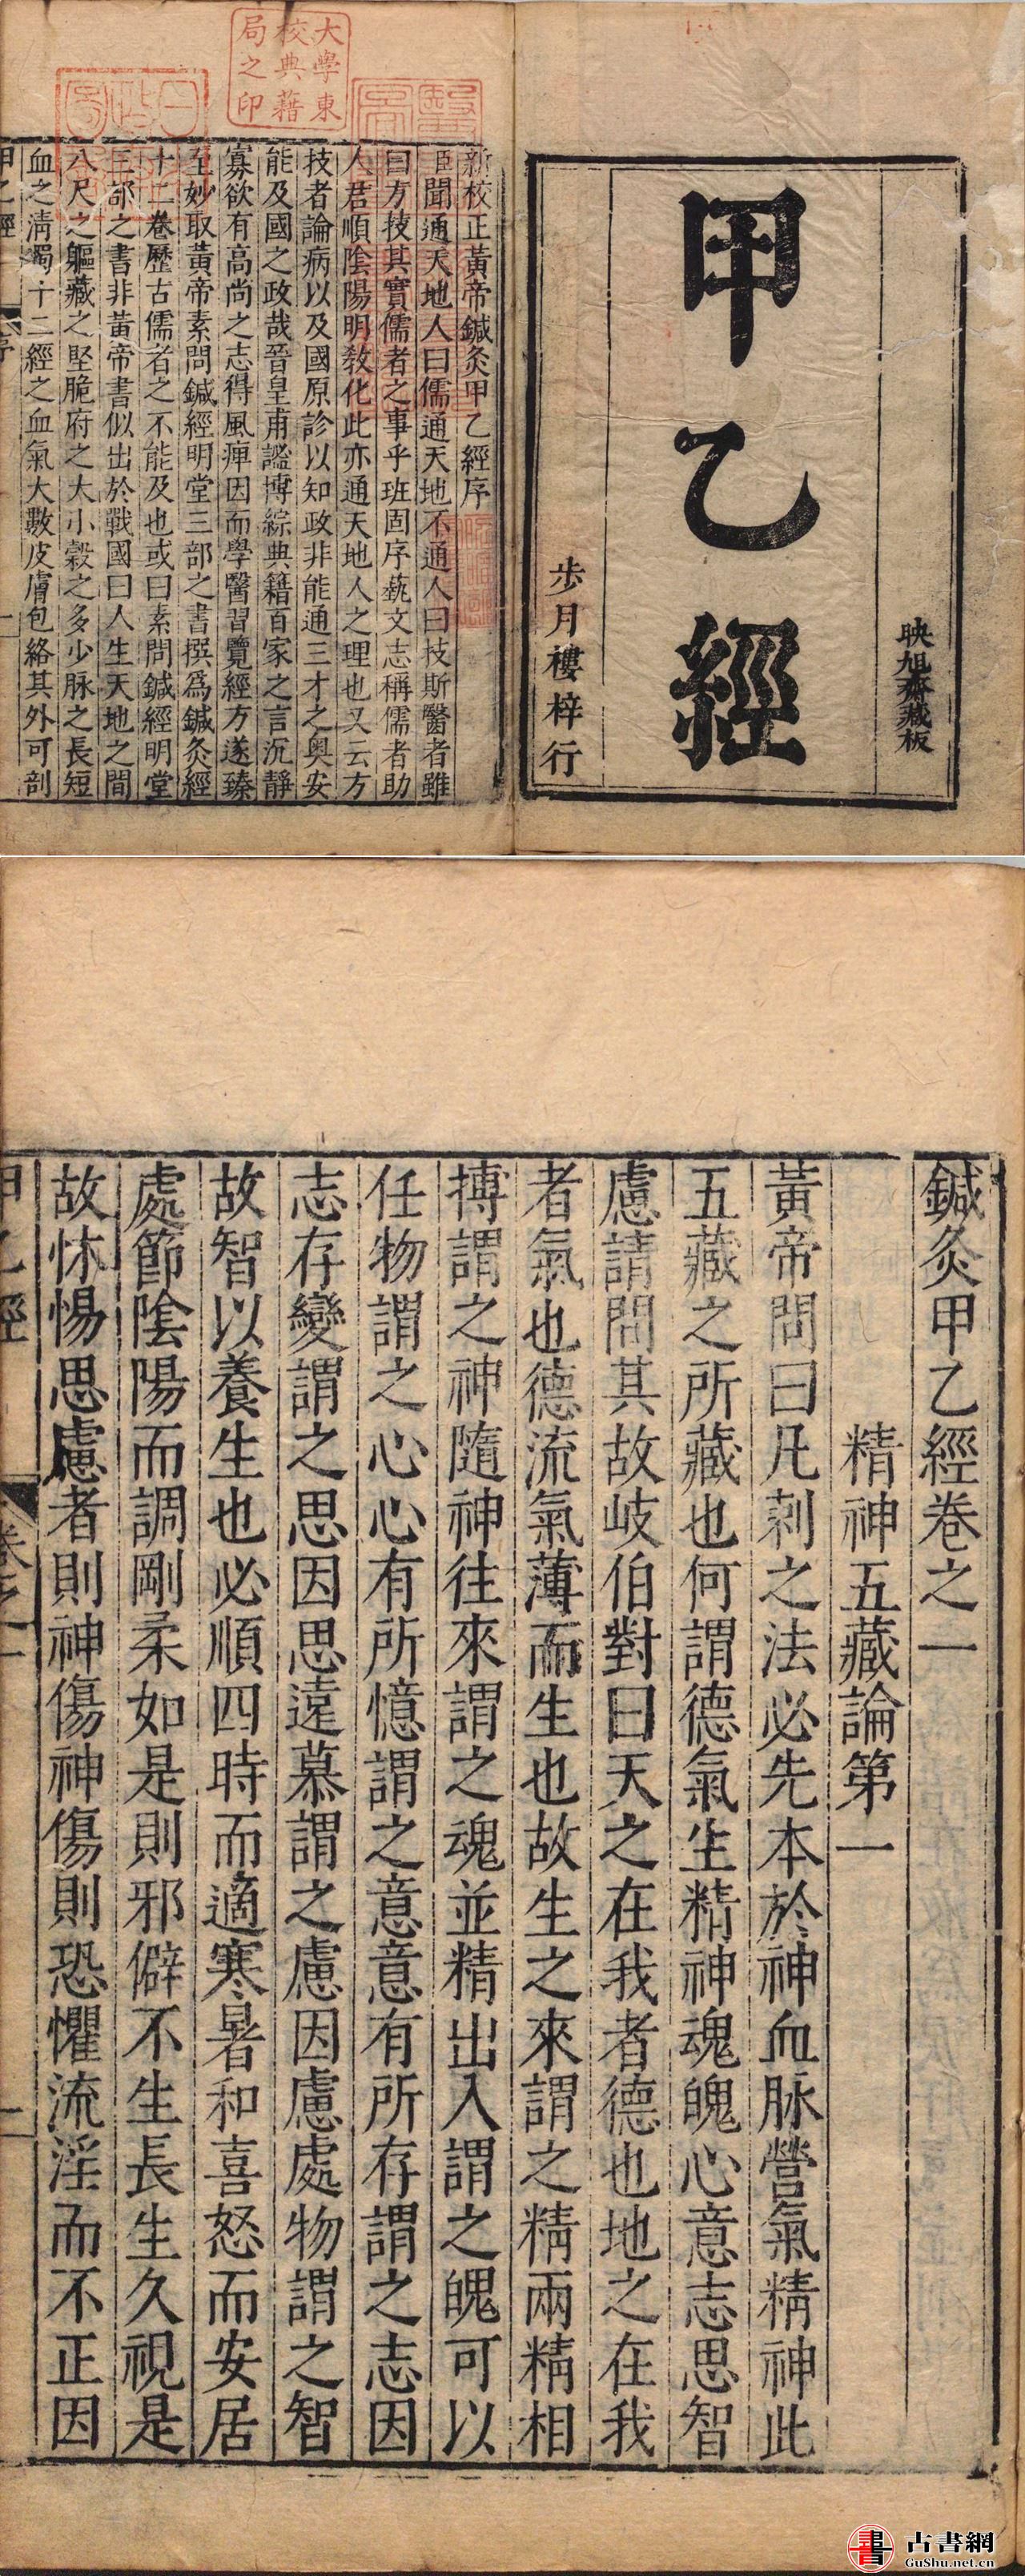 映旭齋藏板
甲乙經
步月樓梓行
新校正黃帝鍼灸甲乙經序
臣聞通天地人曰儒通天地不通人曰技斯醫者雖
曰方技其實儒者之事乎班固序藝文志稱儒者助
人君順陰陽明教化此亦通天地人之理也又云方
技者論病以及國原診以知政非能通三才之奥安
能及國之政哉晉皇甫謐博綜典籍百家之言沉靜
寡欲有高尚之志得風痺因而學醫習覽經方遂臻
至妙取黃帝素問鍼經明堂三部之書撰爲鍼灸經
十二卷歷古儒者之不能及也或曰素問鍼經明堂
三部之書非黃帝書似出於戰國曰人生天地之間
八尺之軀藏之堅脆府之大小穀之多少脉之長短
血之清濁十二經之血氣大數皮膚包絡其外可剖
甲乙經 序 一
大學東
校典藉
局之印
鍼灸甲乙經卷之一
精神五藏論第一
黃帝問曰凡刺之法必先本於神血脉營氣精神此
五藏之所藏也何謂德氣生精神魂魄心意志思智
慮請問其故岐伯對曰天之在我者德也地之在我
者氣也德流氣薄而生也故生之來謂之精兩精相
搏謂之神隨神往來謂之魂並精出入謂之魄可以
任物謂之心心有所憶謂之意意有所存謂之志因
志存變謂之思因思遠慕謂之慮因慮處物謂之智
故智以養生也必順四時而適寒暑和喜怒而安居
處節陰陽而調剛柔如是則邪僻不生長生久視是
故怵惕思慮者則神傷神傷則恐懼流淫而不正因
甲乙經 卷之一 一
書 古書網
GuShu.net.cn